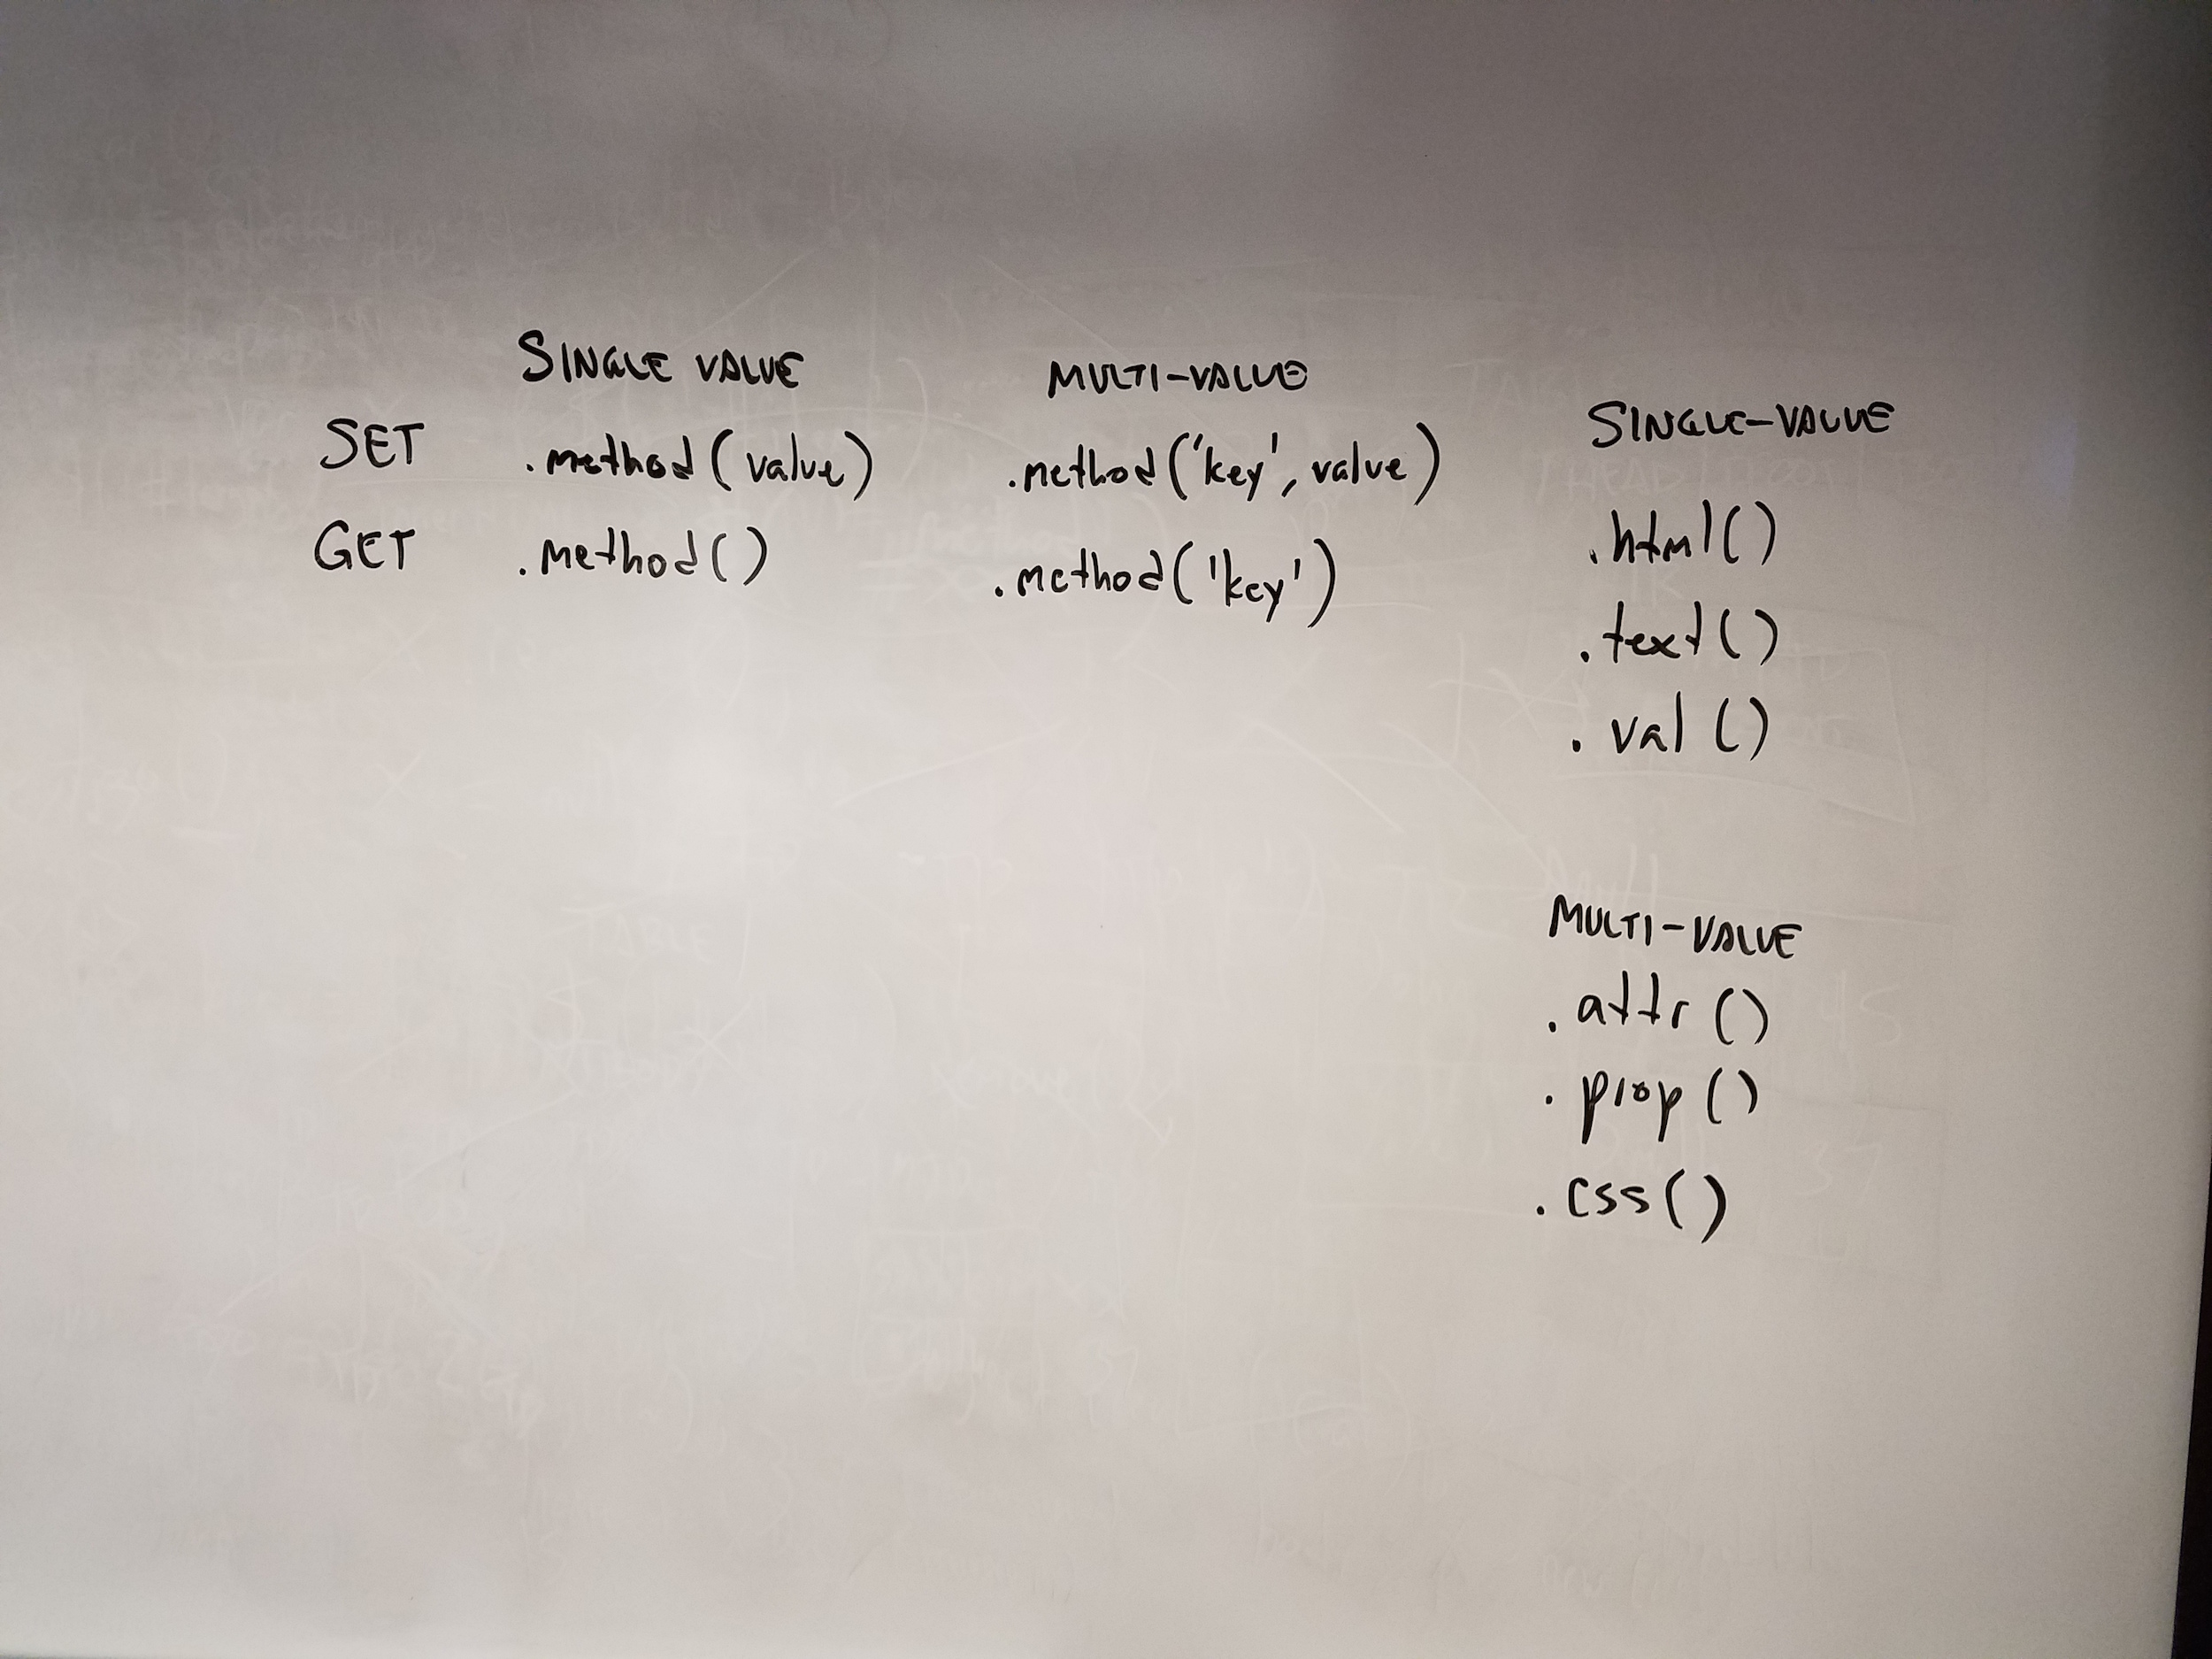 SINGLE VALUE MULTI-VALUE
SET .method(value) .method('key', value)
GET .method() .method('key')
SINGLE-VALUE
.html()
.text()
.val()
MULTI-VALUE
.attr()
.prop()
.css()